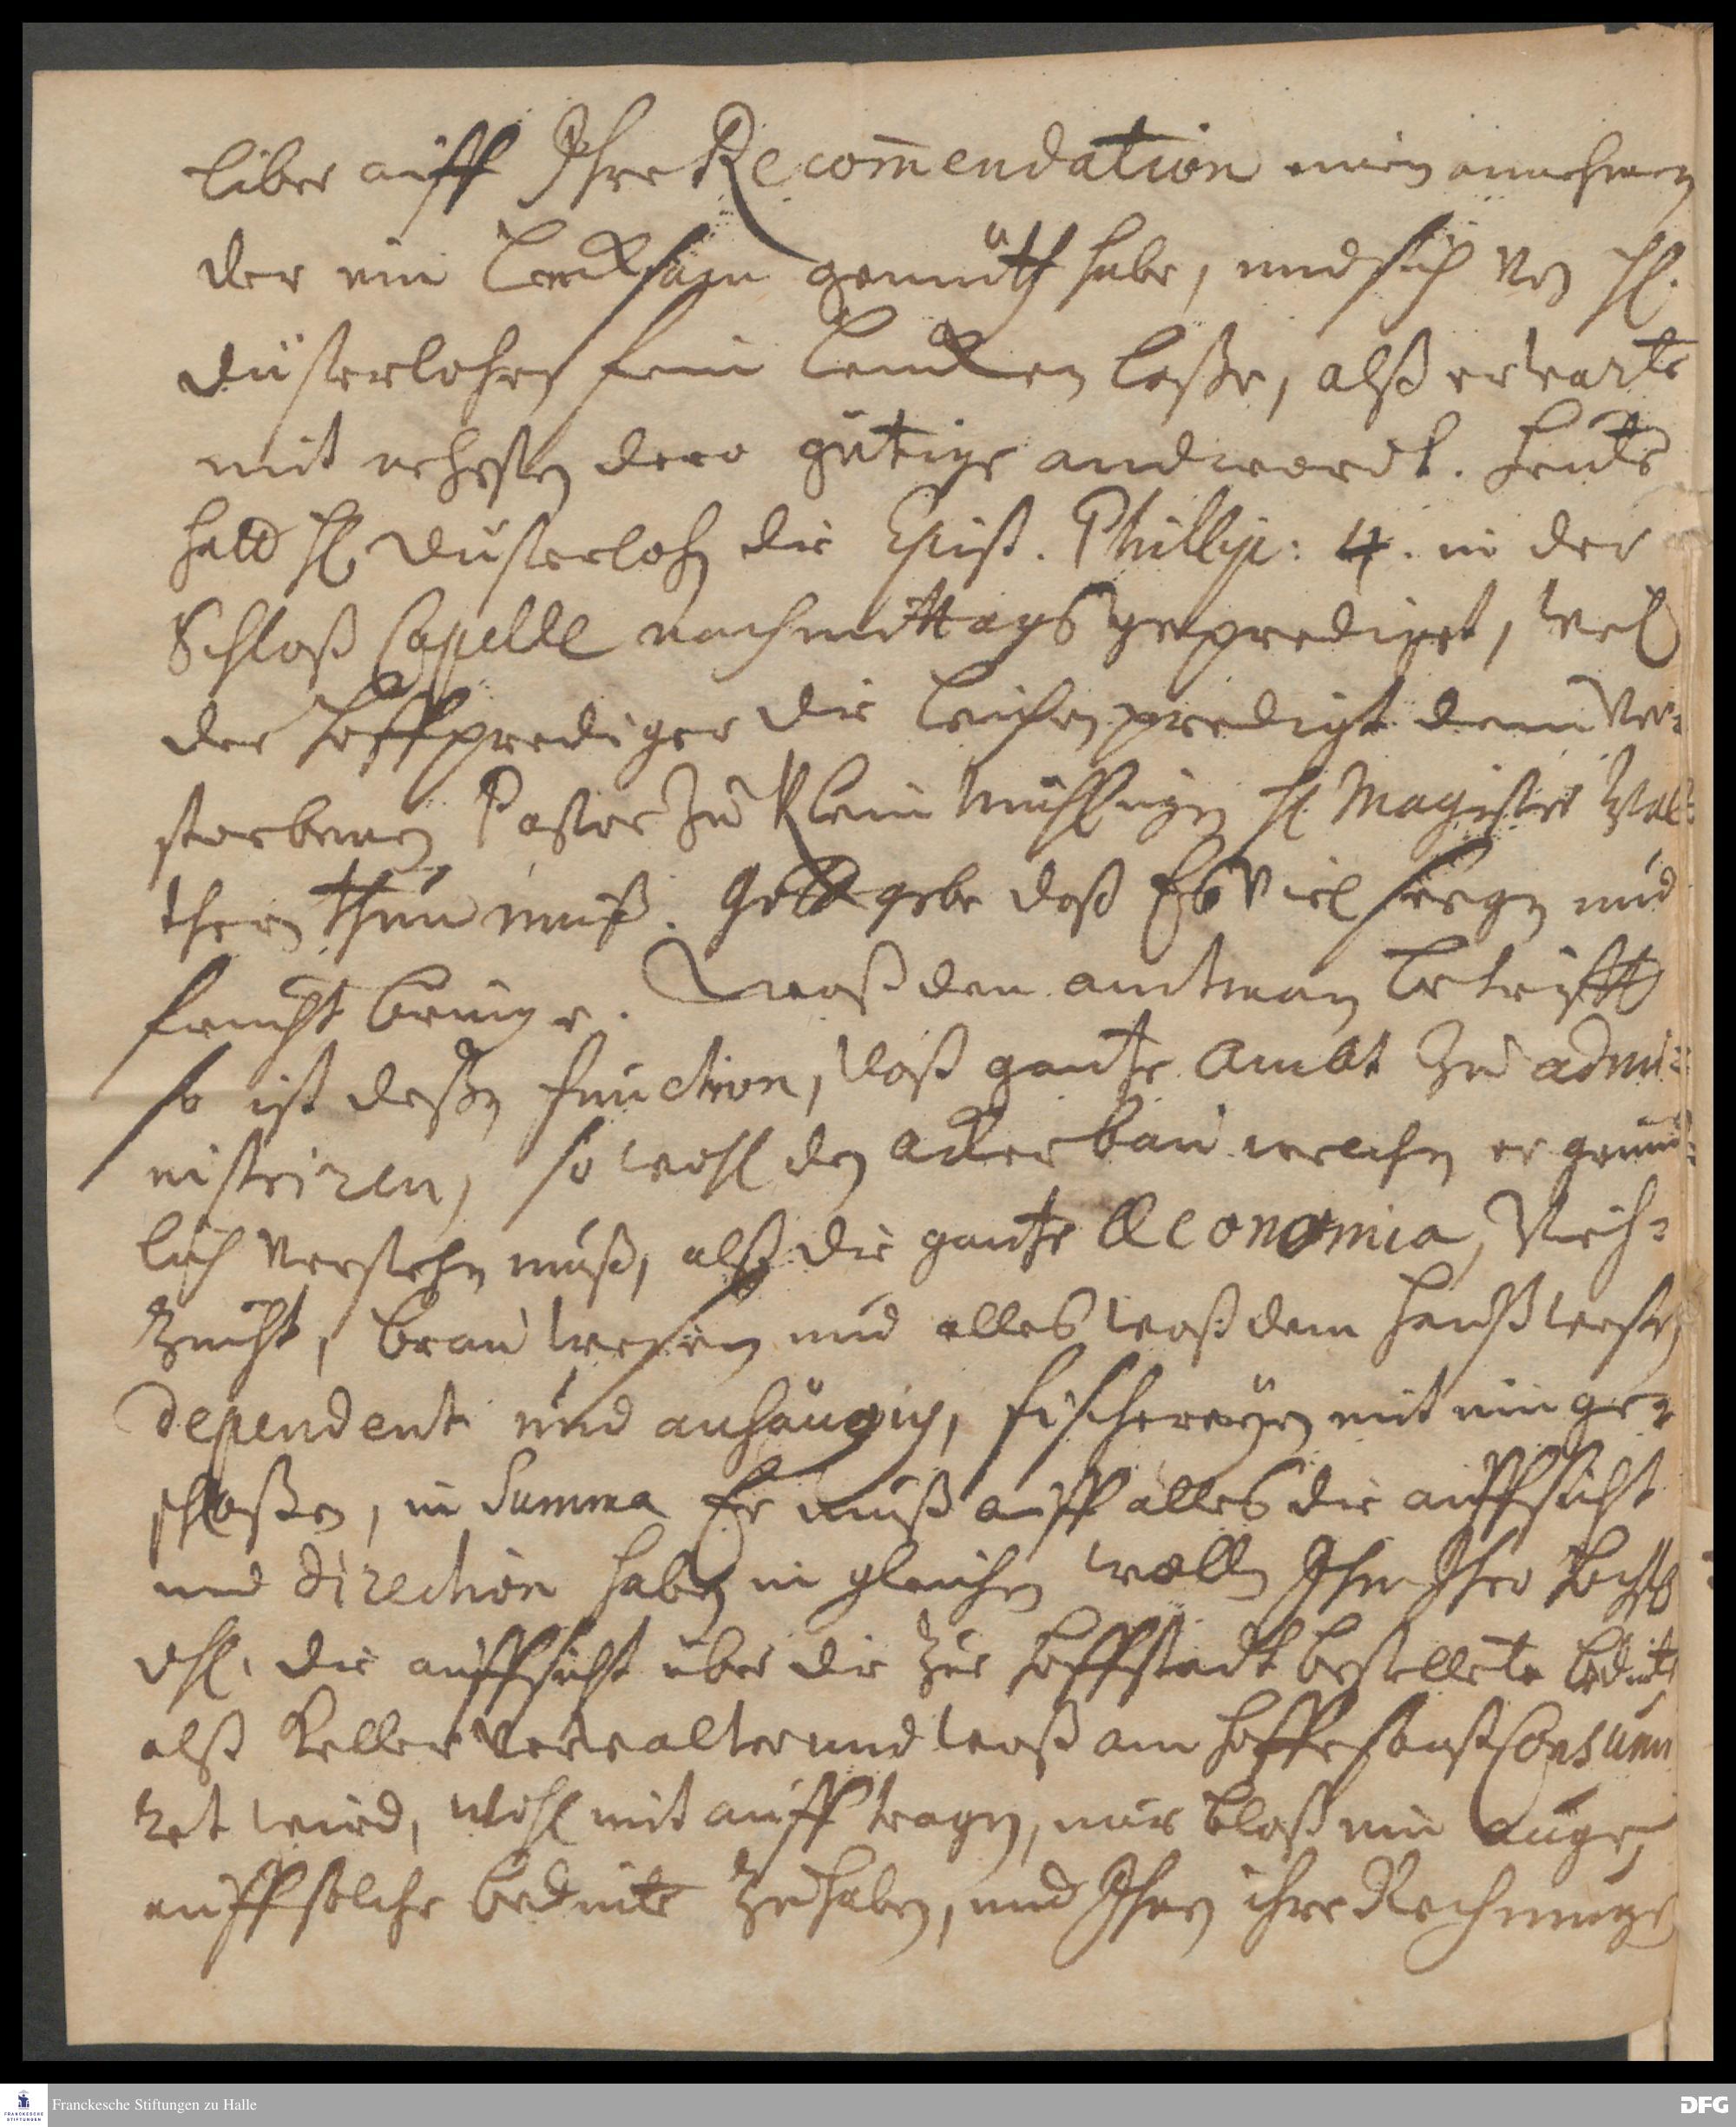 liber auff Ihre Recom̄endation einen annehmen
der ein Lencksahm gemüth habe, und sich von H.
Düsterlohen fein lencken laße, alß erwarte
mit nehesten dero gütige andwordt. Heute
hatt H. Düsterloh die Epist. Phillip: 4. in der
Schloß Capelle nachmittags geprediget, weil
der Hoffprediger die leichenpredigt dem ver-
storbenen Pastor zu Klein Mühlingen H. Magister Wal-
thern thun muß. Gott gebe daß Es viel segen und
frucht bringe. Waß den amtman betrifft
so ist deßen function, daß gantze Ambt zu admi-
nistriren, so wohl den ackerbau welchen er gründ-
lich verstehen muß, alß die gantze Œconomia, Vieh-
zucht, brau wesen und alles waß dem Haußwesen
dependent und anhängig, fischereyen mit einge-
schloßen, in Summa Er muß auff alles die auffsicht
und direction haben in gleichen wollen Ihm Ihro Hochfl
dhl. die auffsicht über die zur Hoffstadt bestellete bediente
alß Keller verwalter und waß am Hoffe sonst Consumi
ret wird, wohl mit aufftragen, nur bloß ein auge,
auff solche bediente zu haben, und Ihnen ihre Rechnunge
Franckesche Stiftungen zu Halle
DFG